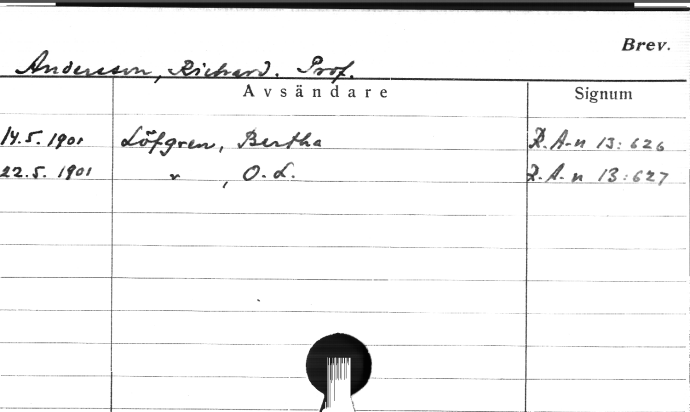 Brev.
Andersson, Richard. Prof.
Avsändare Signum
14.5.1901 Löfgren, Bertha R.A-n 13:626
22.5.1901 " , O.L. R.A-n 13:627